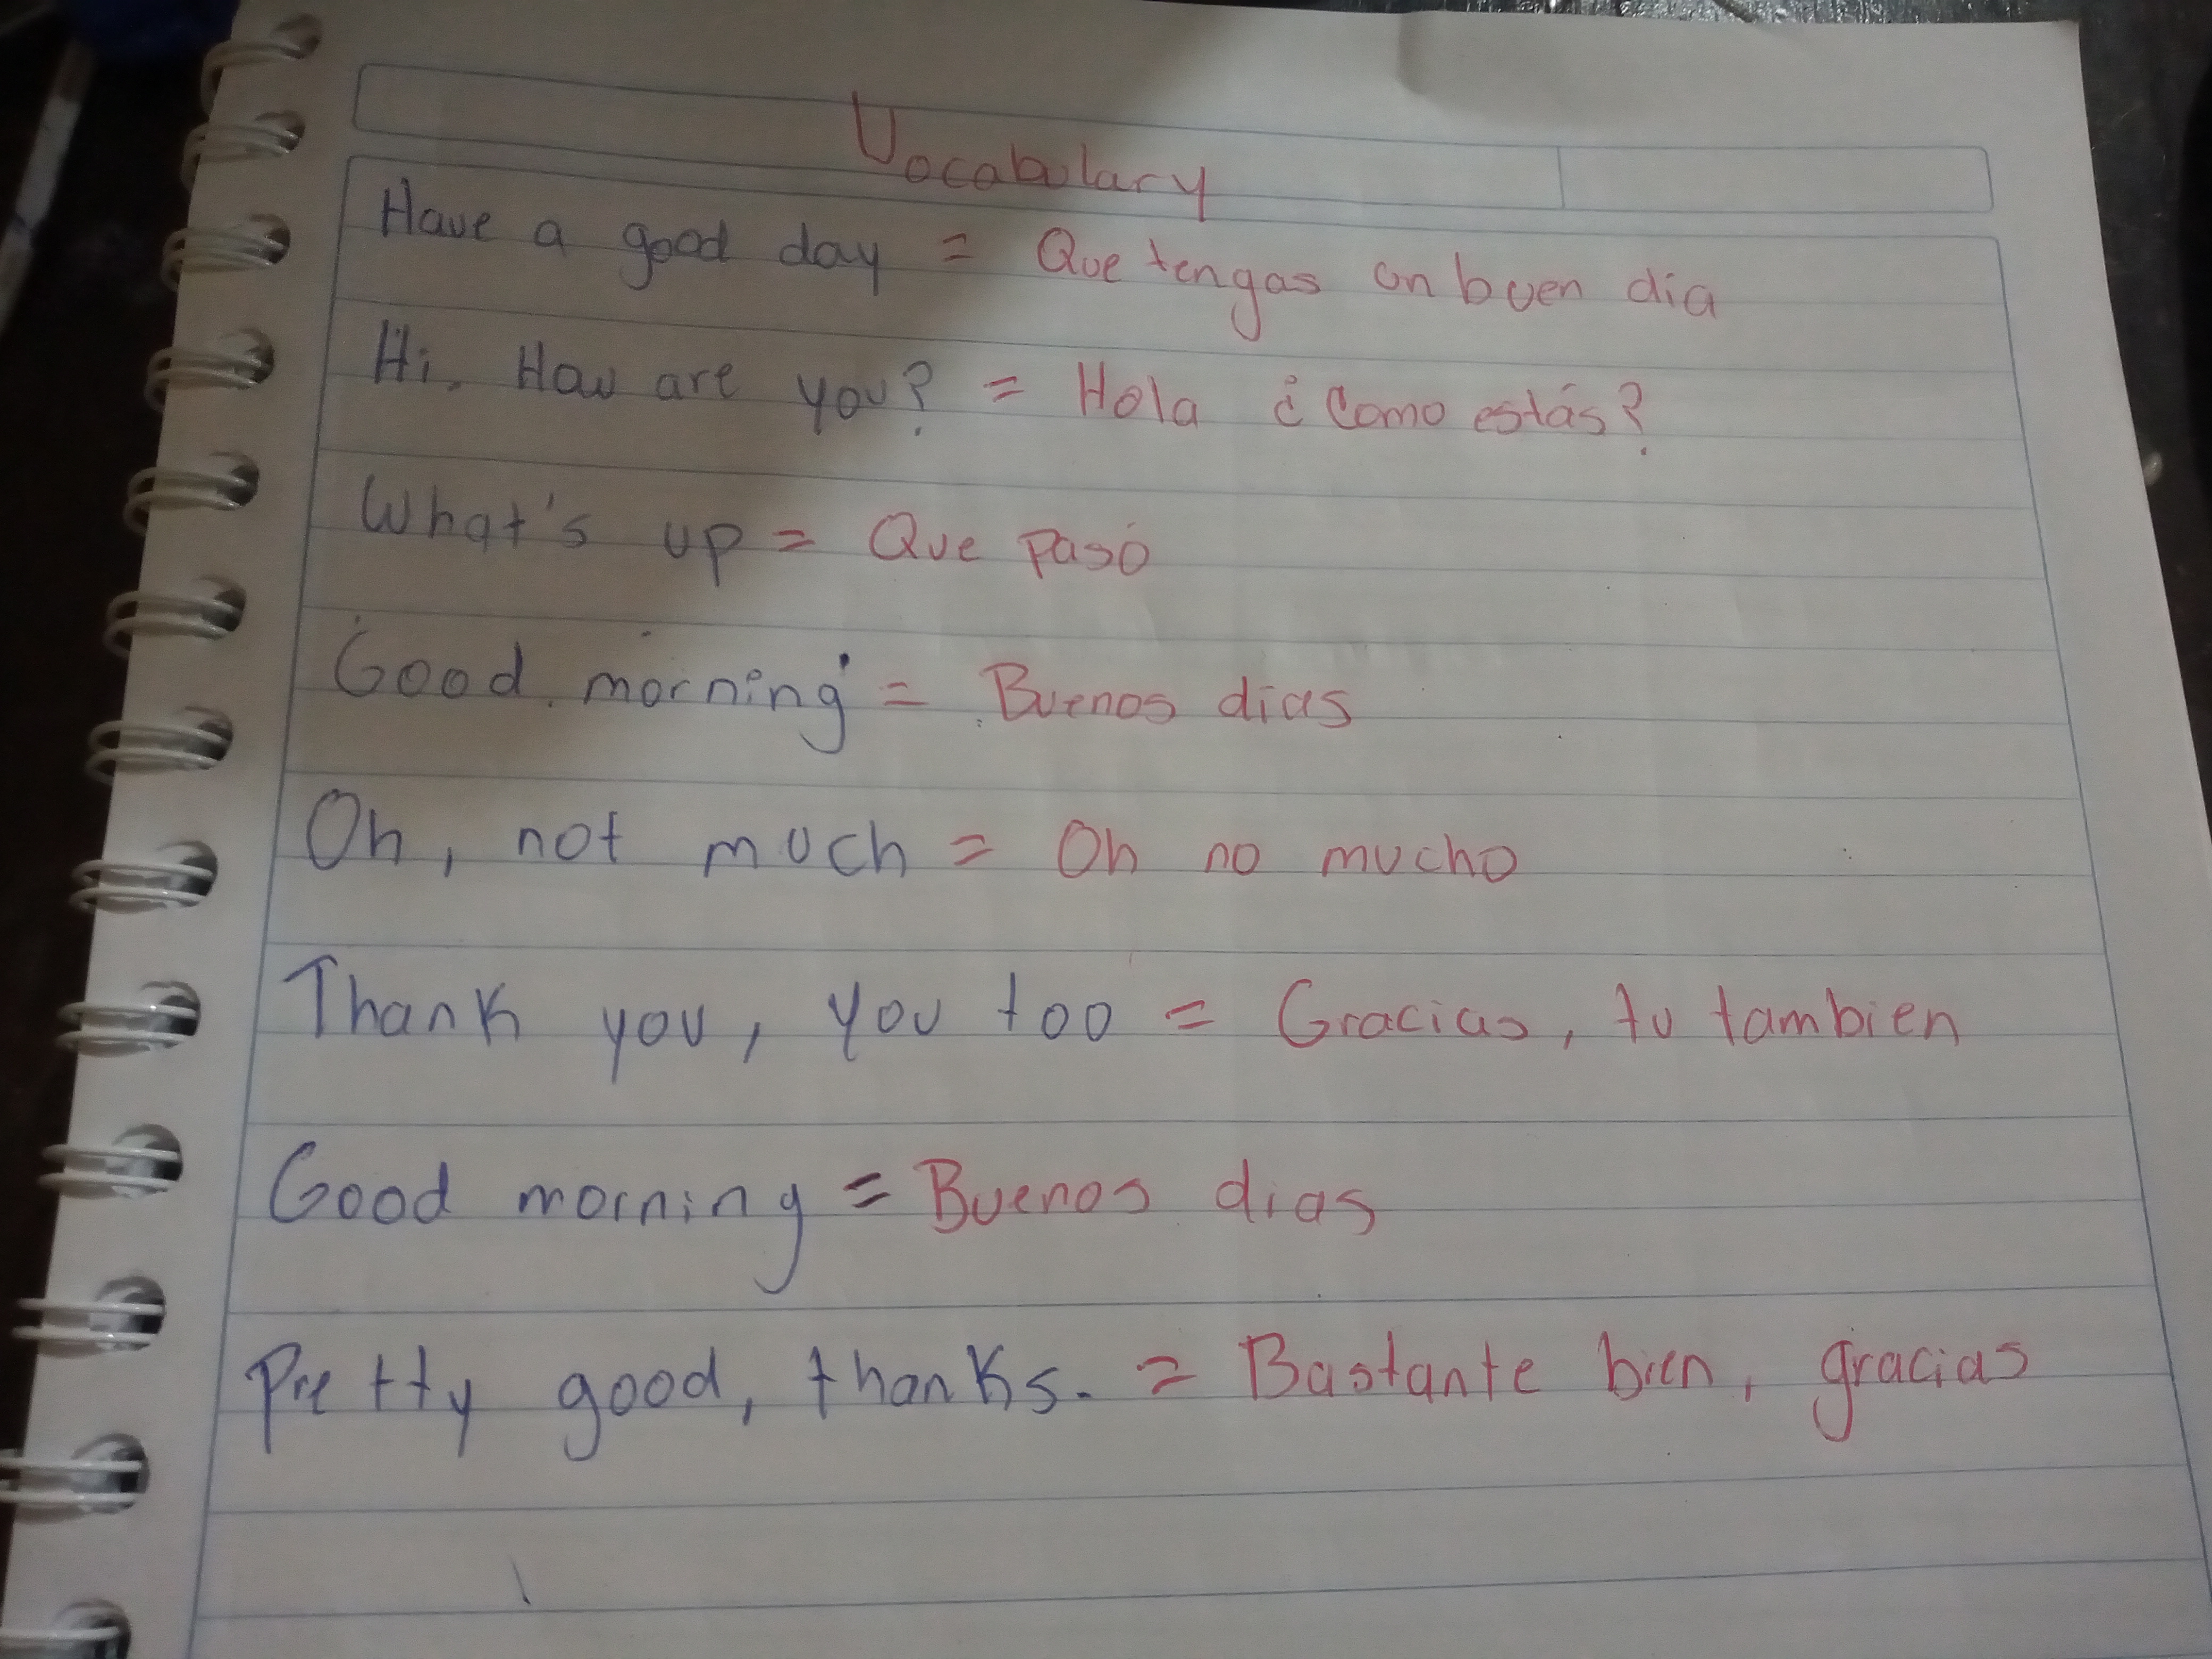 Vocabulary
Have a good day = Que tengas un buen dia
Hi, How are you? = Hola ¿Como estás?
What's up = Que pasó
Good morning = Buenos dias
Oh, not much = Oh no mucho
Thank you, you too = Gracias, tu tambien
Good morning = Buenos dias
Pretty good, thanks. = Bastante bien, gracias